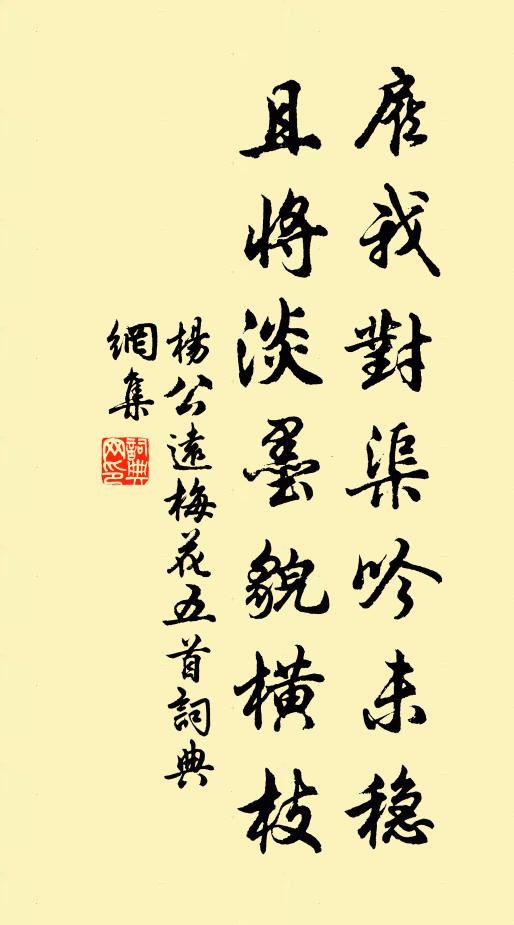 我對渠吟未稳
且将淡墨貌横枝
楊公遠梅花五首詞典
網集
詞典
网印